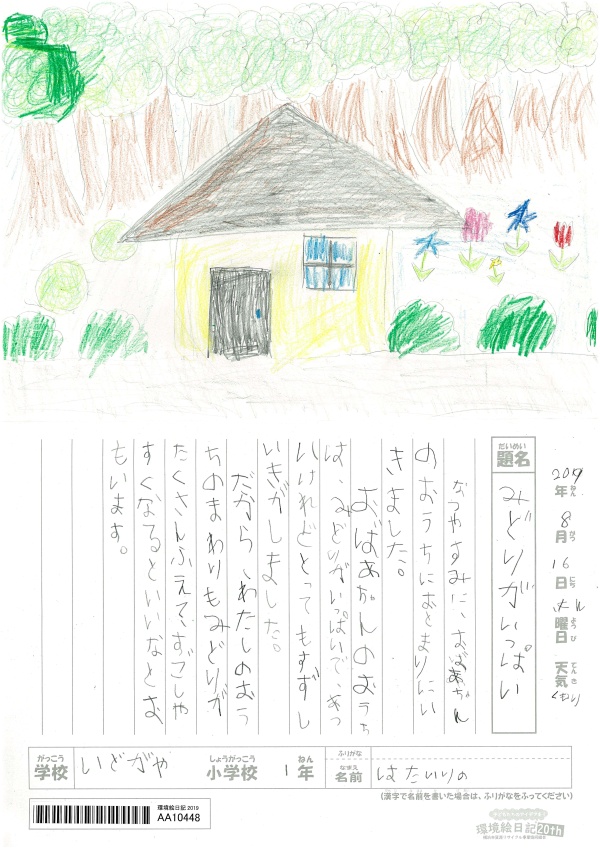 2019年ねん8月がつ16日にちきん曜日ようび天気てんきくもり
題名だいめい
みどりがいっぱい
なつやすみに、おばあちゃん
のおうちにおとまりにい
きました。
おばあちゃんのおうち
は、みどりがいっぱいで、あつ
いけれどとってもすずし
いきがしました。
だから、わたしのおう
ちのまわりもみどりが
たくさんふえて、すごしや
すくなるといいなとお
もいます。
がっこう しょうがっこう ねん ふりがな
学校 いどがや 小学校 1年 なまえ 名前 はたいりの
(漢字で名前を書いた場合は、ふりがなをふってください)
環境絵日記 2019
AA10448
環境絵日記20th